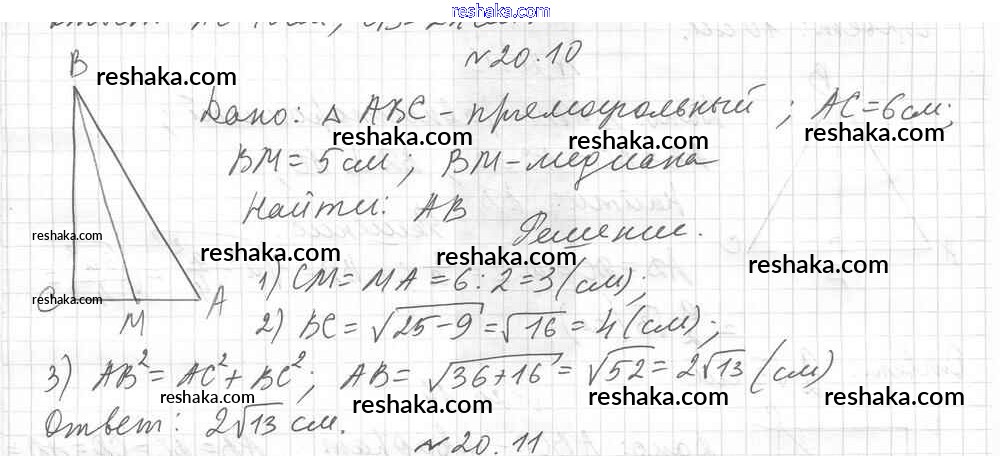 reshaka.com
№20.10
B
reshaka.com
Дано: △ ABC - прямоугольный ; AC = 6 см;
reshaka.com
reshaka.com
BM = 5 см ; BM - медиана
reshaka.com
Найти: AB
reshaka.com
Решение.
reshaka.com
reshaka.com
1) CM = MA = 6 : 2 = 3 (см);
C
reshaka.com
M
A
2) BC = √25-9 = √16 = 4 (см);
reshaka.com
3) AB² = AC² + BC² ; AB = √36+16 = √52 = 2√13 (см)
reshaka.com
reshaka.com
reshaka.com
reshaka.com
Ответ: 2√13 см.
№20.11